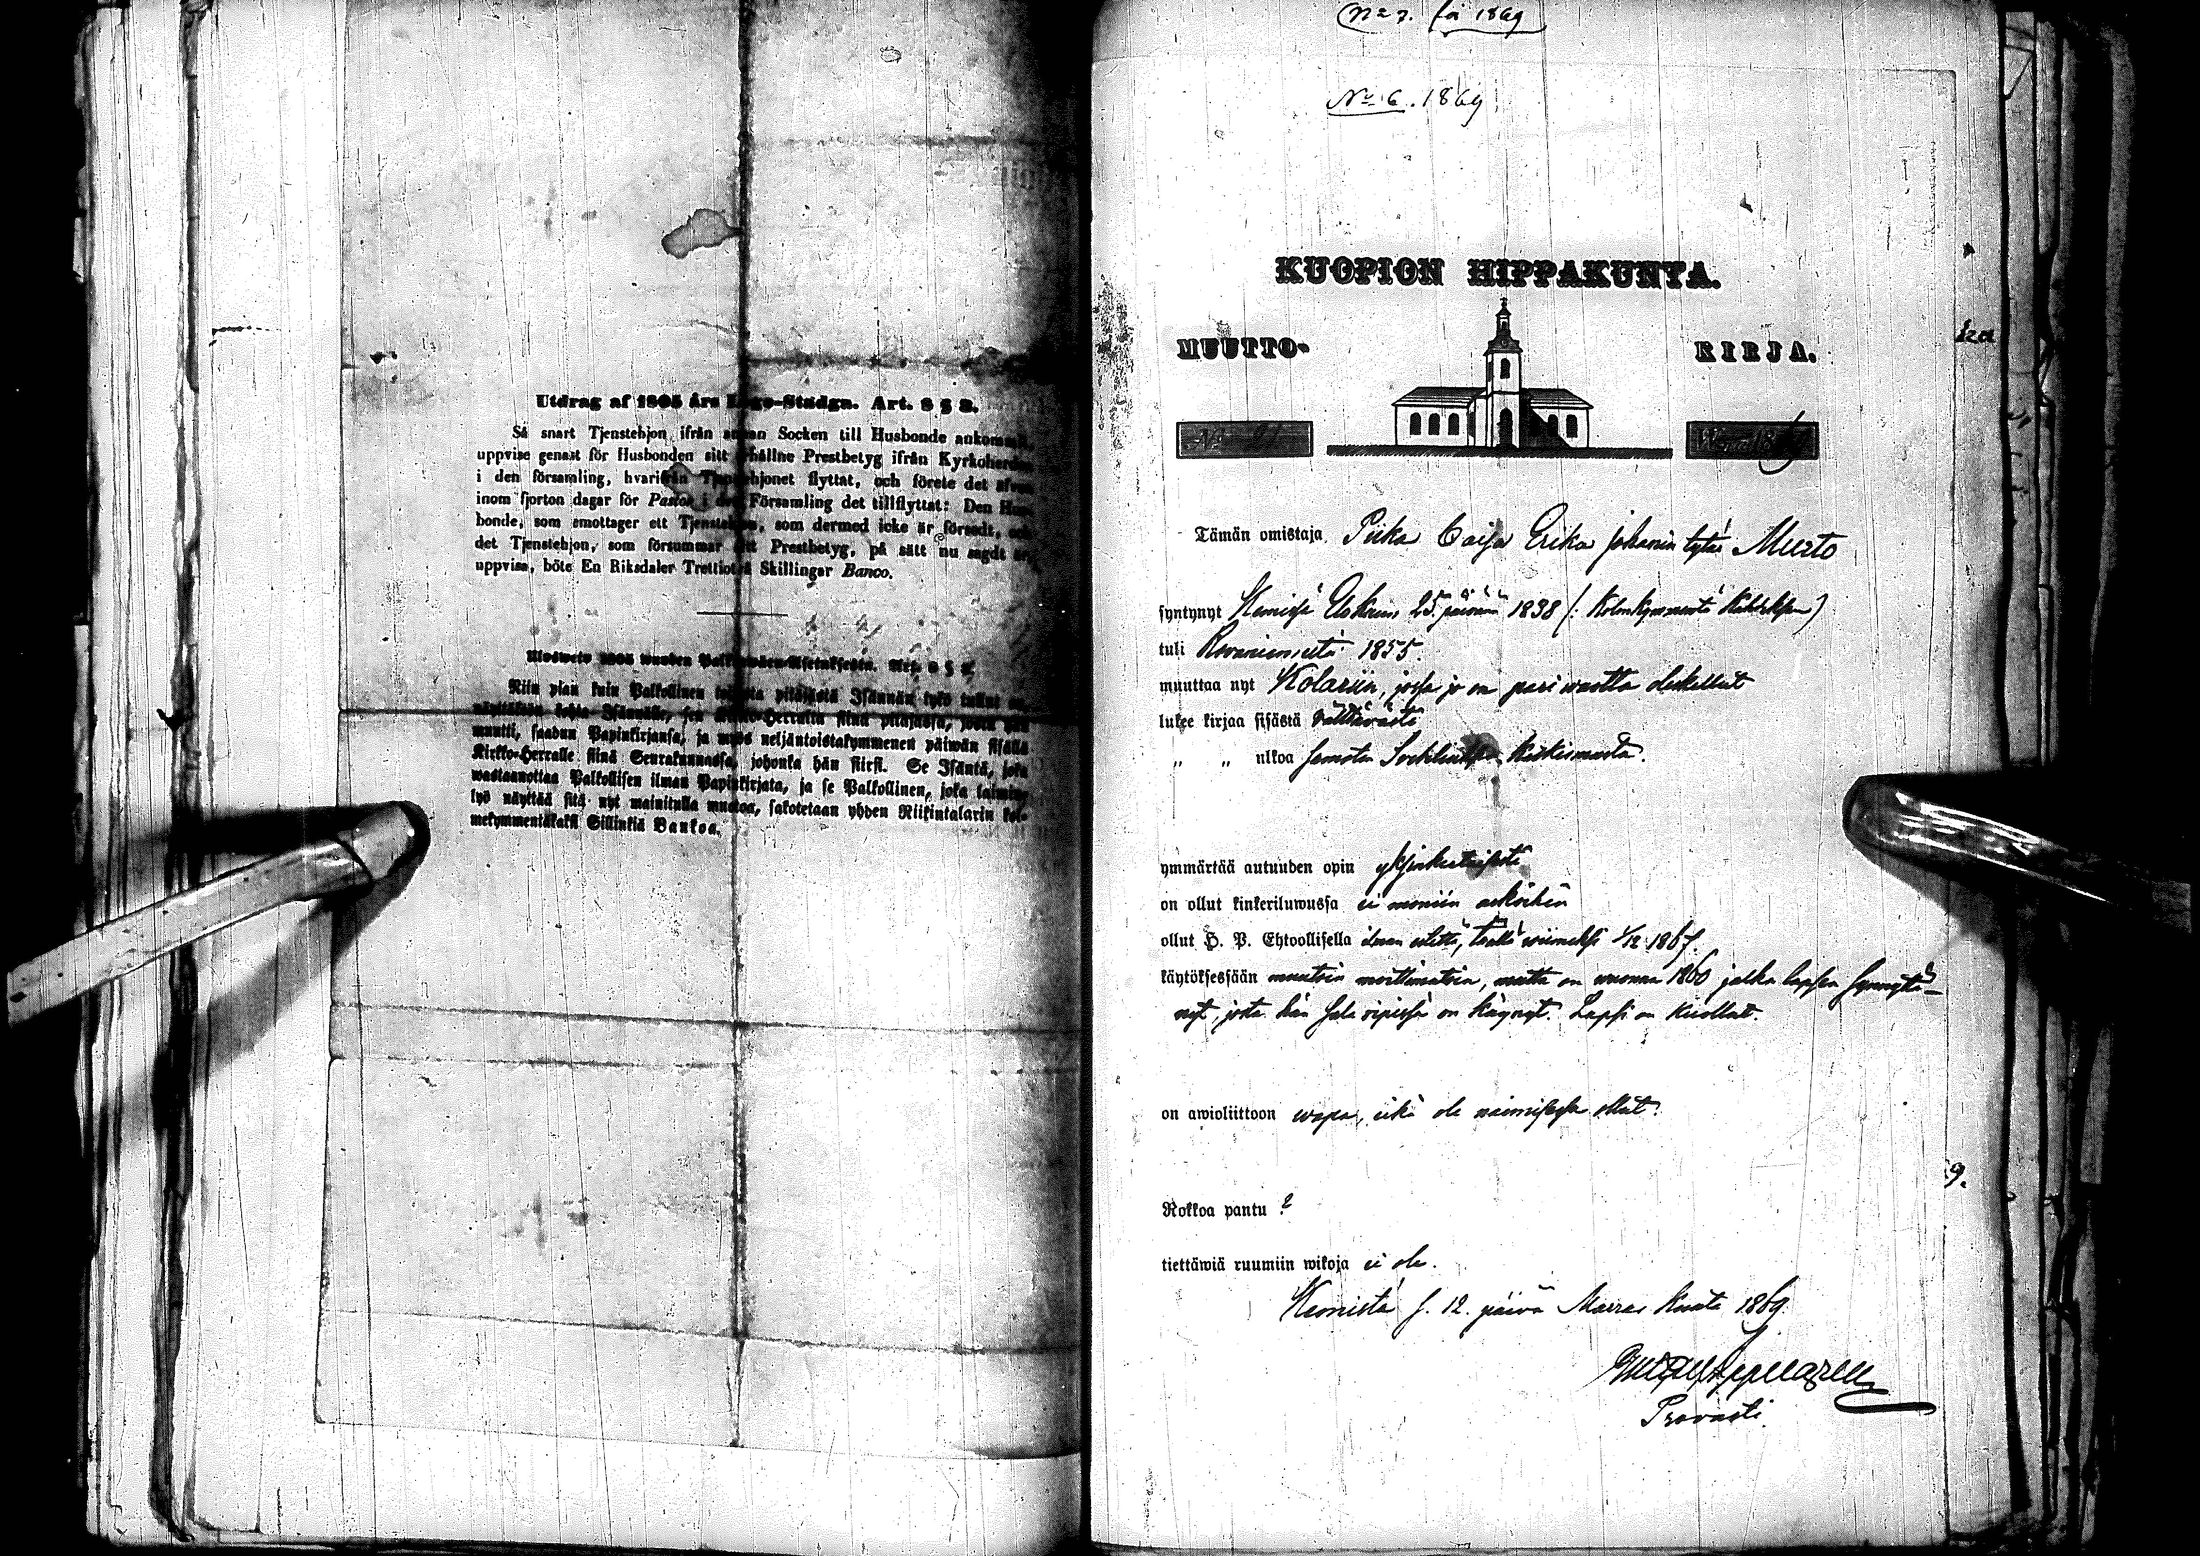 Utdrag af 1805 års Lego-Stadga. Art. 8 § 2.
Så snart Tjenstehjon ifrån annan Socken till Husbonde ankommit,
uppvise genast för Husbonden sitt erhållne Prestbetyg ifrån Kyrkoherden
i den församling, hvarifrån Tjenstehjonet flyttat, och förete det äfven
inom fjorton dagar för Pastor i den Församling det tillflyttat: Den Hus-
bonde, som emottager ett Tjenstehjon, som dermed icke är försedt, och
det Tjenstehjon, som försummar att Prestbetyg, på sätt nu sagdt är,
uppvisa, böte En Riksdaler Trettiotvå Skillingar Banco.
Ulosweto 1805 wuoden Palkkawäen-Asetuksesta. Art. 8 § 2.
Niin pian kuin Palkollinen toisesta pitäjästä Isännän tykö tullut on,
näyttäkään kohta Isännälle, sen Kirkko-Herralta siinä pitäjässä, josta hän
muutti, saadun Papinkirjansa, ja myös neljäntoistakymmenen päiwän sisällä
Kirkko-Herralle siinä Seurakunnassa, johonka hän siirsi. Se Isäntä, joka
wastaanottaa Palkollisen ilman Papinkirjata, ja se Palkollinen, joka laimin-
lyö näyttää sitä nyt mainitulla muotoa, sakotetaan yhden Riikintalarin kol-
mekymmentäkaksi Sillinkiä Bankoa.
No 7. för 1869
No 6. 1869
KUOPION HIPPAKUNTA.
MUUTTO- KIRJA.
No Wuonna 1869
Tämän omistaja Piika Caisa Erika Johanin tytär Murto
syntynyt Kemissä 25. päivänä 1838 (: Kolmekymmentä kahdeksan)
tuli Rovaniemeltä 1855.
muuttaa nyt Kolariin, jossa jo on pari wuotta oleskellut
lukee kirjaa sisästä välttävästi
" " ulkoa
ymmärtää autuuden opin yksinkertaisesti
on ollut kinkeriluwussa ei moniin aikoihin
ollut H. P. Ehtoollisella 1/12 1867.
käytöksessään muutoin moittimatoin, mutta on vuonna 1860 jalka lapsen synnyttä-
nyt, josta hän sala ripissä on käynyt. Lapsi on kuollut.
on awioliittoon wapa, eikä ole naimisessa ollut.
Rokkoa pantu ?
tiettäwiä ruumiin wikoja ei ole.
Kemistä s. 12. päivä Marras kuuta 1869.
Provasti.